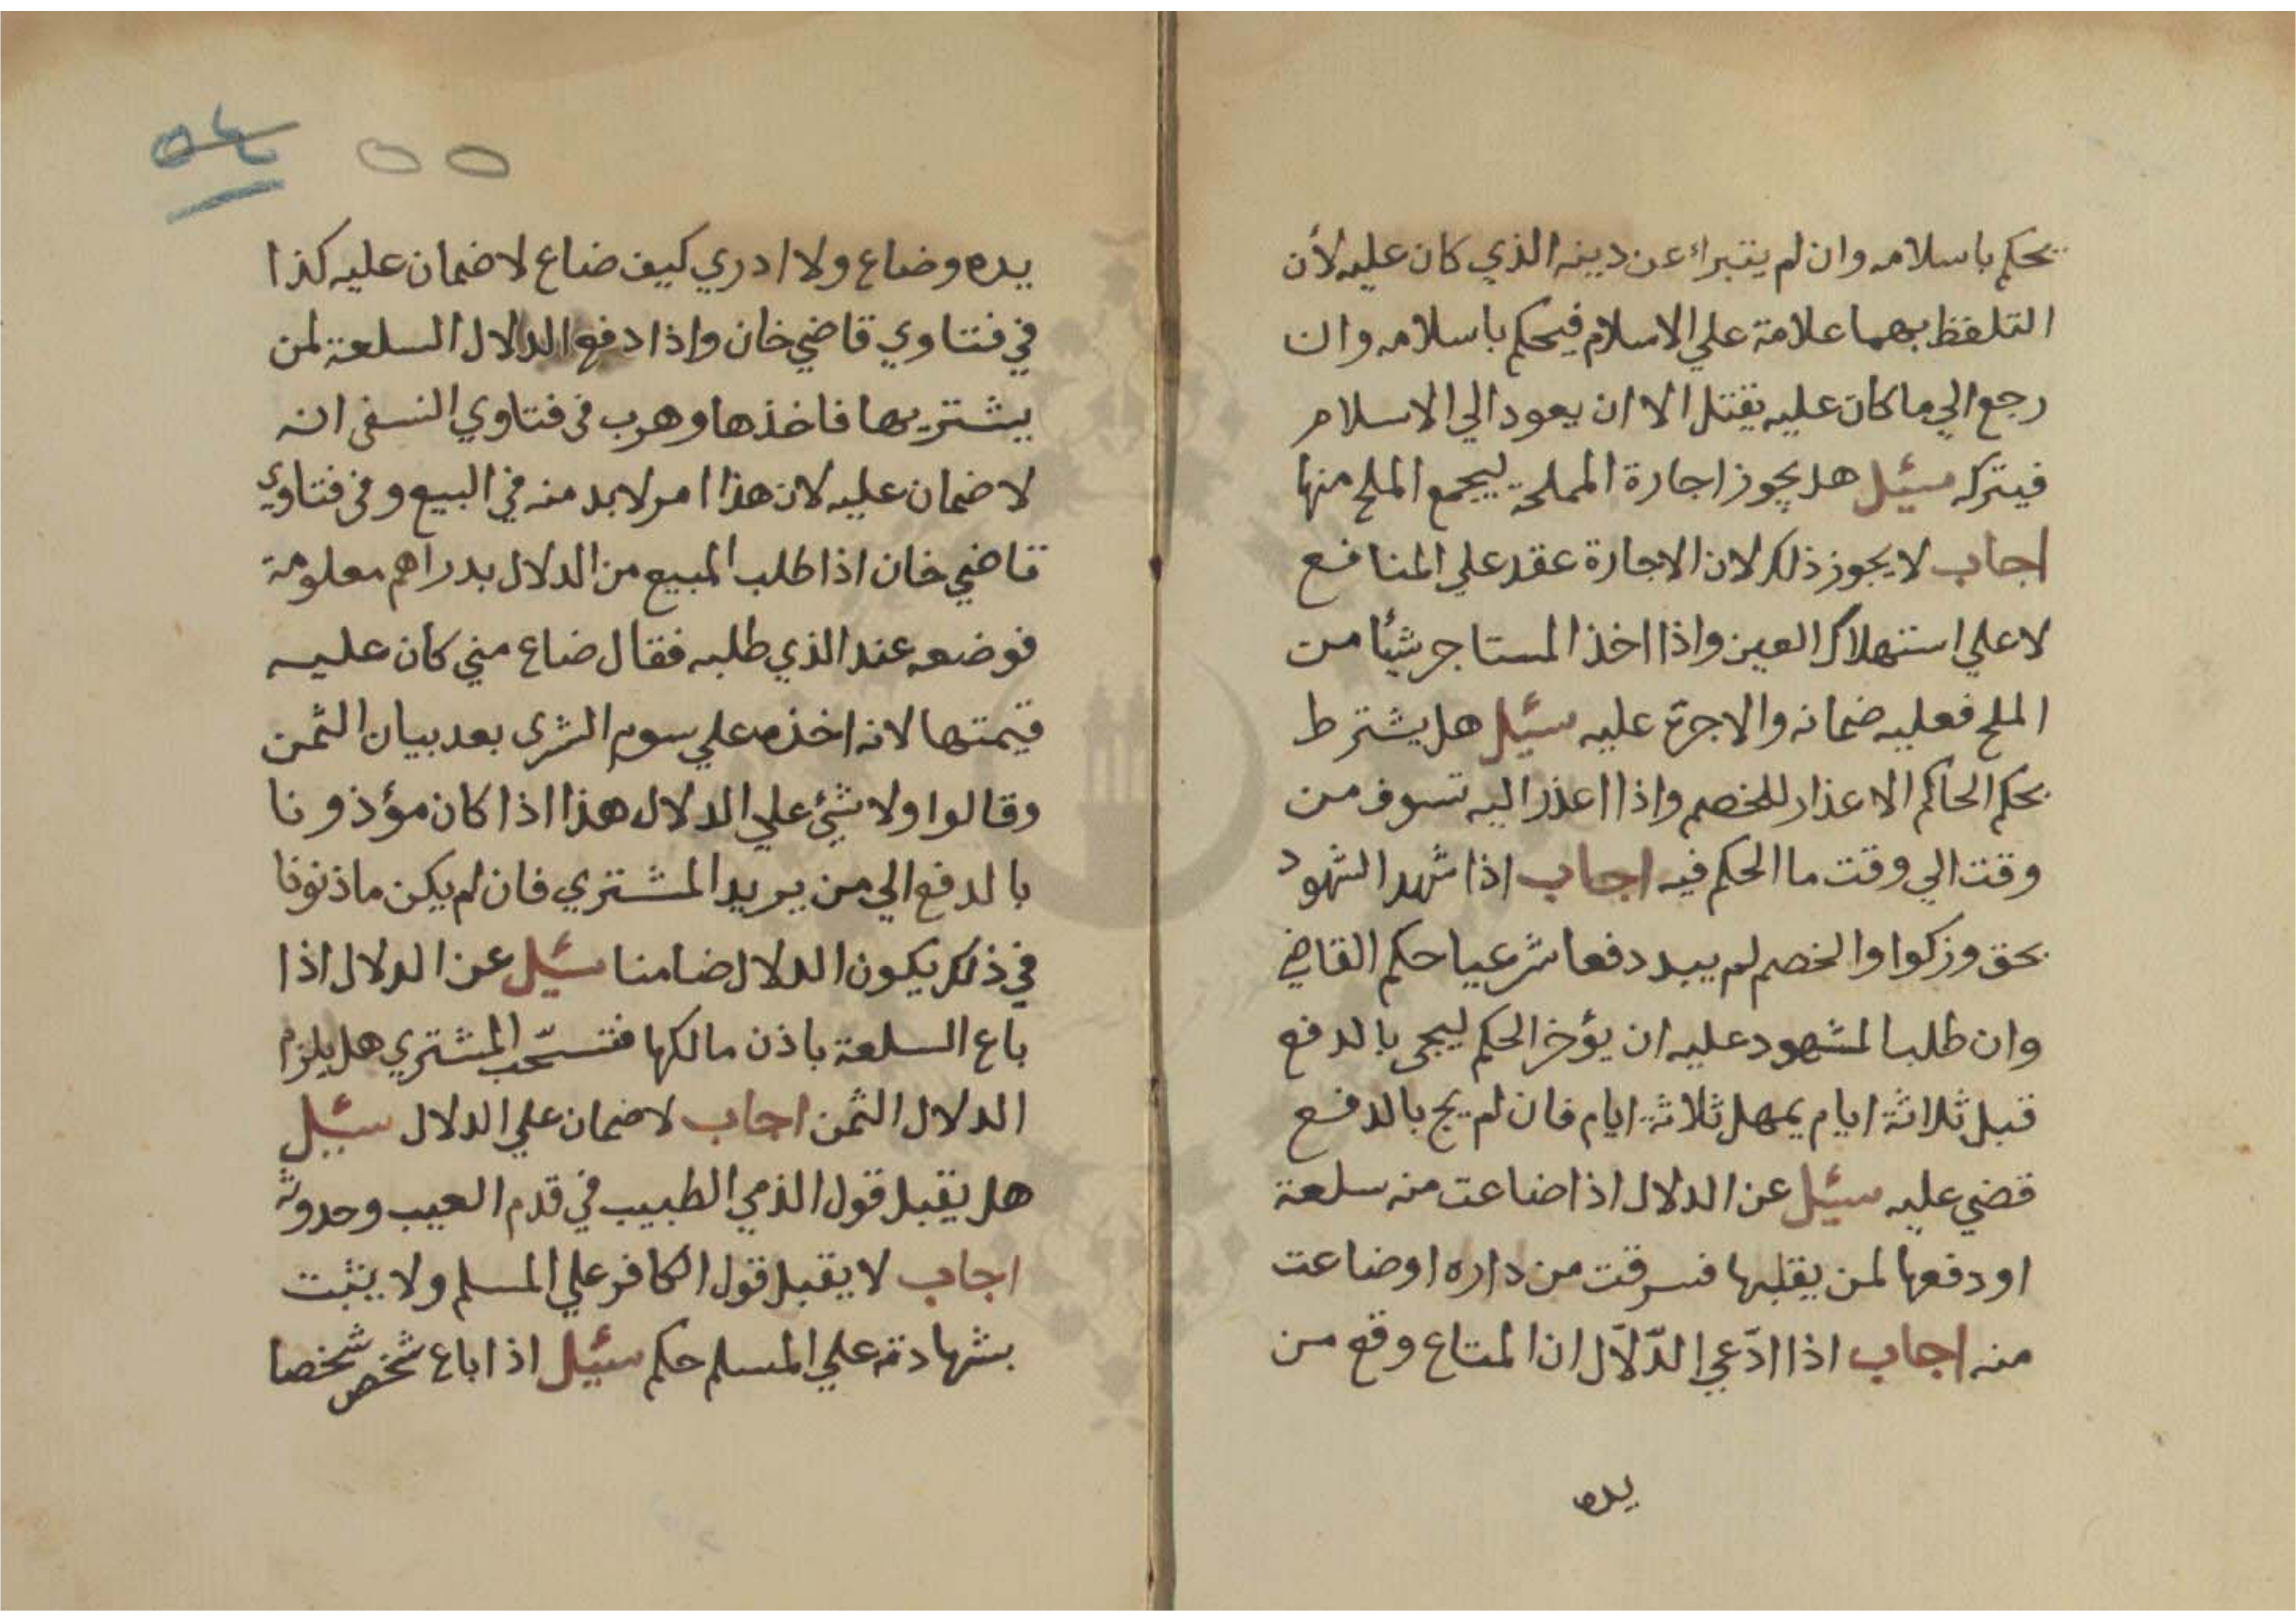 يحكم باسلامه وان لم يتبراء عن دينه الذي كان عليه لأن
التلفظ بهما علامة علي الاسلام فيحكم باسلامه وان
رجع الي ما كان عليه يقتل الا ان يعود الي الاسلام
فيتركه سئيل هل يجوز اجارة المملحة ليجمع الملح منها
اجاب لا يجوز ذلك لان الاجارة عقد علي المنافع
لا علي استهلاك العين واذا اخذ المستاجر شيئا من
الملح فعليه ضمانه والاجرة عليه سئيل هل يشترط
بحكم الحاكم الاعذار للخصم واذا اعذر اليه تسوف من
وقت الي وقت ما الحكم فيه اجاب اذا شهد الشهود
بحق وزكوا والخصم لم يبد دفعا شرعيا حكم القاضي
وان طلب المشهود عليه ان يؤخر الحكم ليجي بالدفع
قبل ثلاثة ايام يمهل ثلاثة ايام فان لم يج بالدفع
قضي عليه سئيل عن الدلال اذا ضاعت منه سلعة
او دفعها لمن يقلبها فسرقت من داره او ضاعت
منه اجاب اذا ادّعي الدّلّال ان المتاع وقع من
يده
٥٥ ٥٤
يده وضاع ولا ادري كيف ضاع لا ضمان عليه كذا
في فتاوي قاضي خان واذا دفع الدلال السلعة لمن
يشتريها فاخذها وهرب في فتاوي النسفي انه
لا ضمان عليه لان هذا امر لابد منه في البيع وفي فتاوي
قاضي خان اذا طلب المبيع من الدلال بدراهم معلومة
فوضعه عند الذي طلبه فقال ضاع مني كان عليه
قيمتها لانه اخذه علي سوم الشري بعد بيان الثمن
وقالوا ولا شيئ علي الدلال هذا اذا كان مؤذونا
بالدفع الي من يريد المشتري فان لم يكن ماذنونا
في ذلك يكون الدلال ضامنا سئيل عن الدلال اذا
باع السلعة باذن مالكها فتسحّب المشتري هل يلزم
الدلال الثمن اجاب لا ضمان علي الدلال سئيل
هل يقبل قول الذمي الطبيب في قدم العيب وحدوثه
اجاب لا يقبل قول الكافر علي المسلم ولا يثبت
بشهادته علي المسلم حكم سئيل اذا اباع شخص شخصا